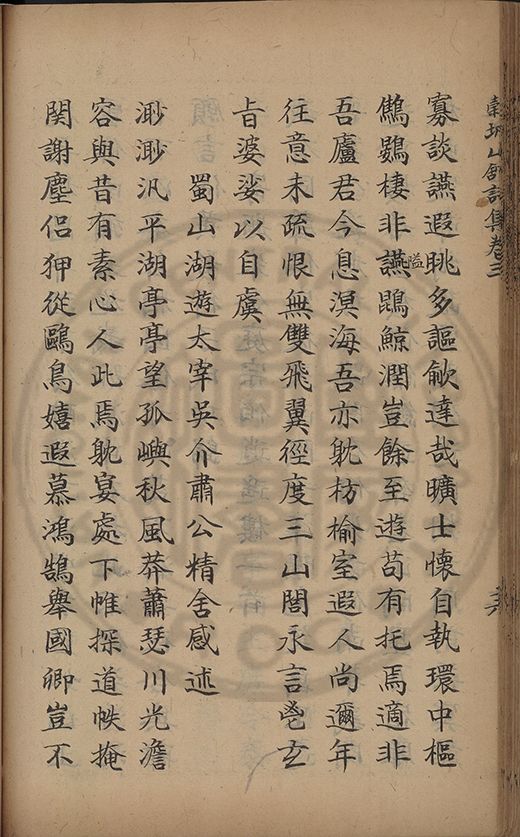 山館詩集卷三
寡談讌遐眺多謳歈達哉曠士懷自執環中樞
鷦鷃棲非隘鵾鯨潤豈餘至遊苟有托焉適非
吾廬君今息溟海吾亦耽枋榆室遐人尚邇年
往意未疏恨無雙飛翼徑度三山閭永言
旨婆娑以自虞
蜀山湖遊太宰吳介肅公精舍感述
渺渺汎平湖亭亭望孤嶼秋風莽蕭瑟川光澹
容與昔有素心人此焉耽宴處下帷探道帙掩
関謝塵侶狎從鷗鳥嬉遐慕鴻鵠舉國卿豈不